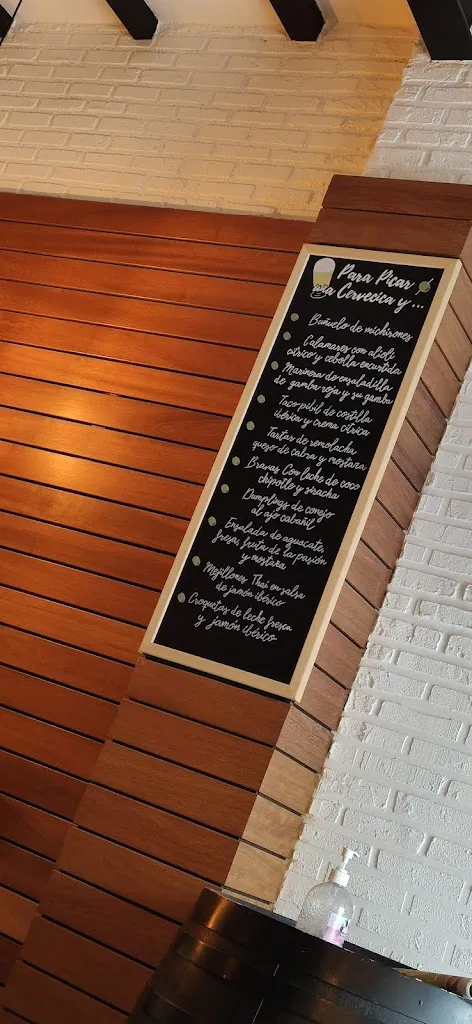 Para Picar
una Cervecica y ...
Buñuelo de michirones
Calamares con alioli
cítrico y cebolla encurtida
Marinera de ensaladilla
de gamba roja y su gamba
Taco pibil de costilla
ibérica y crema cítrica
Tartar de remolacha
queso de cabra y mostaza
Bravas Con leche de coco
chipotle y siracha
Dumplings de conejo
al ajo cabañil
Ensalada de aguacate,
fresa, fruta de la pasión
y mostaza
Mejillones Thai en salsa
de jamón ibérico
Croquetas de leche fresca
y jamón ibérico